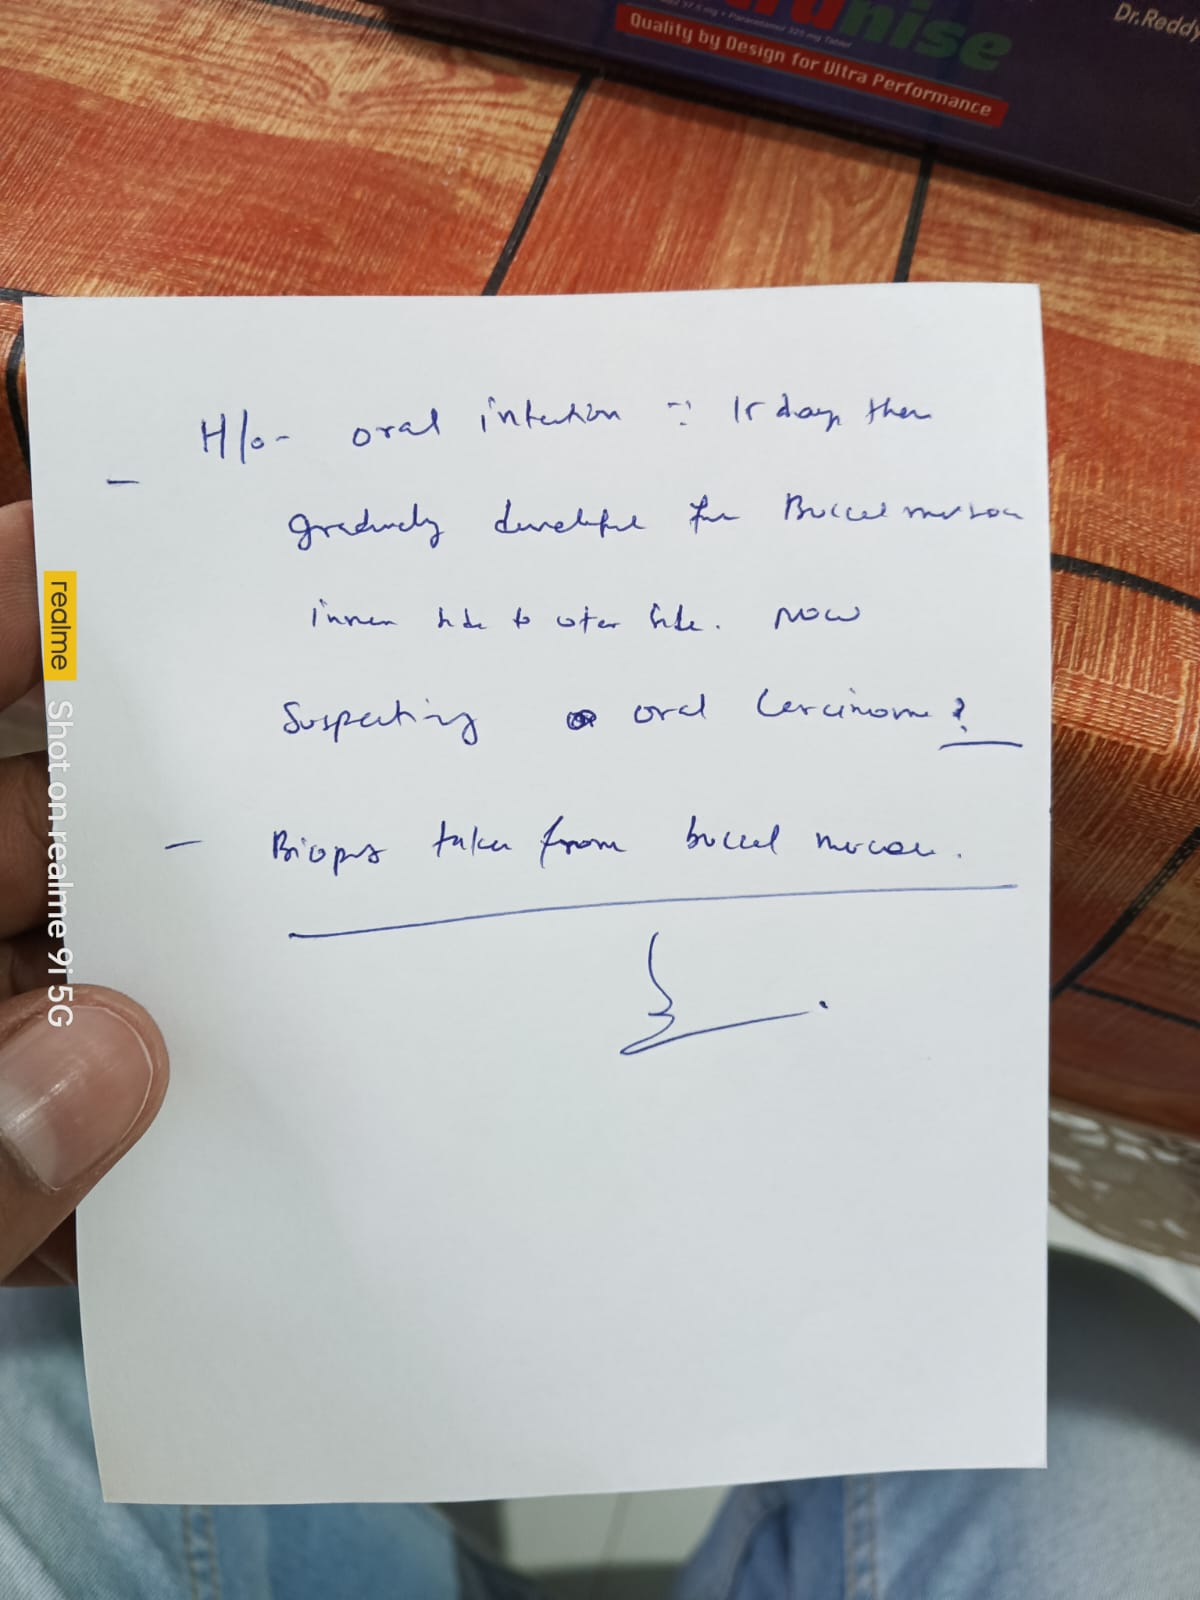 Dr.Reddy
nise
Quality by Design for Ultra Performance
H/o- oral infection 15 days then
gradually from Buccal mucosa
inner side to outer side. NOW
Suspecting oral Carcinoma?
- Biopsy taken from buccal mucosa.
realme Shot on realme 9i 5G